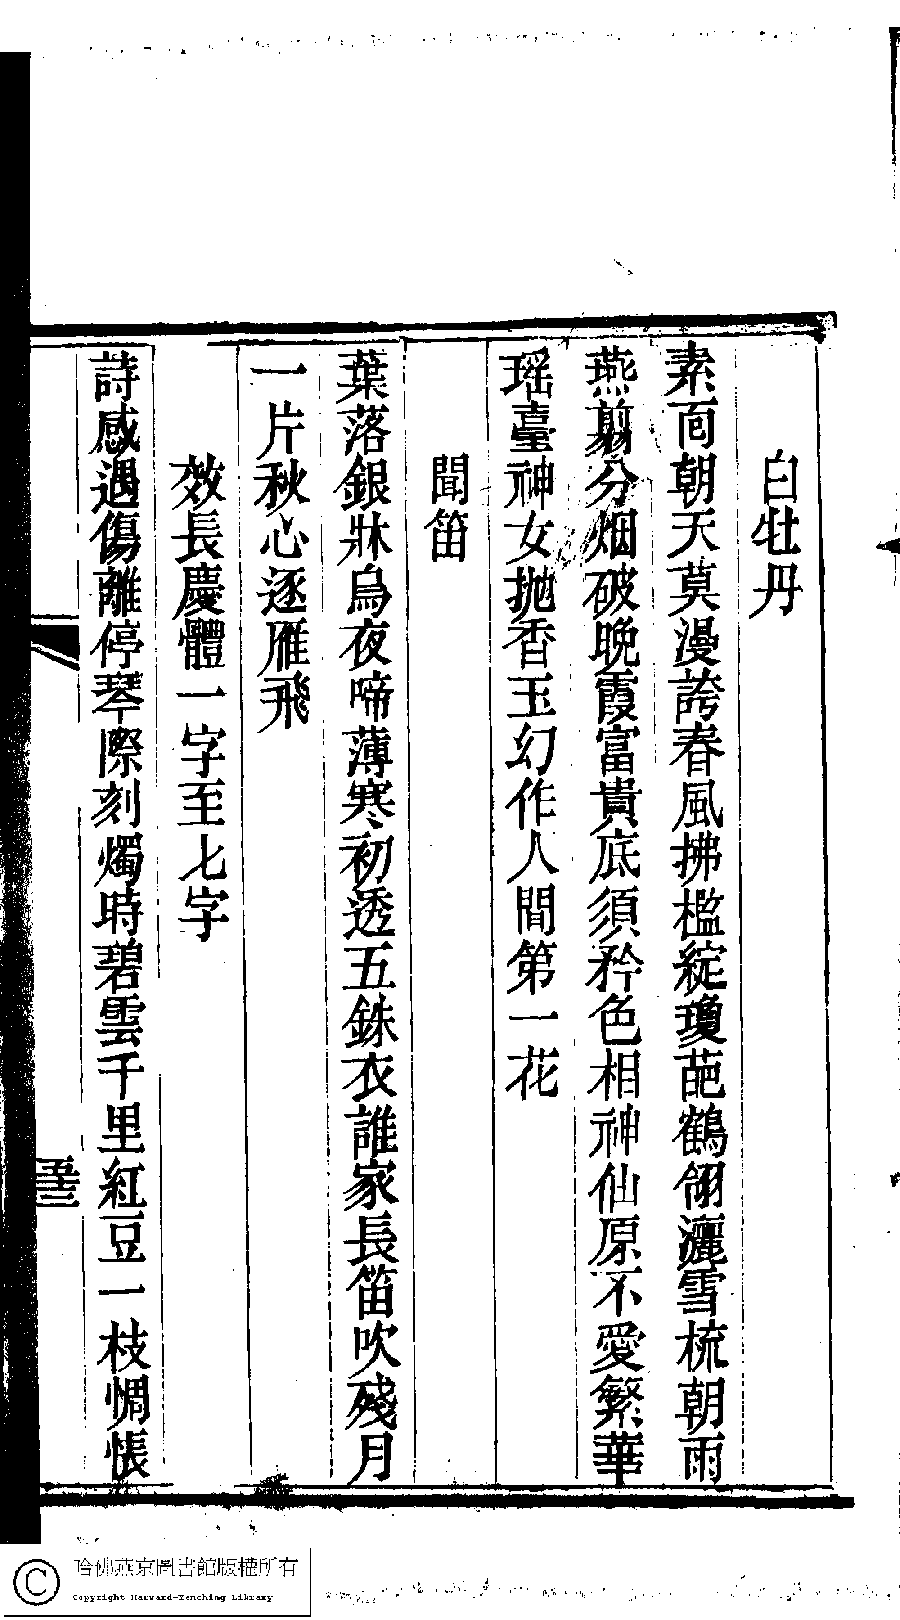 白牡丹
素面朝天莫漫誇春風拂檻綻瓊葩鶴翎灑雪梳朝雨
燕翦分烟破晚霞富貴底須矜色相神仙原不愛繁華
瑶臺神女抛香玉幻作人間第一花
聞笛
葉落銀牀烏夜啼薄寒初透五銖衣誰家長笛吹殘月
一片秋心逐雁飛
效長慶體一字至七字
詩感遇傷離停琴際刻燭時碧雲千里紅豆一枝惆悵
哈佛燕京圖書館版權所有
Copyright Harvard-Yenching Library